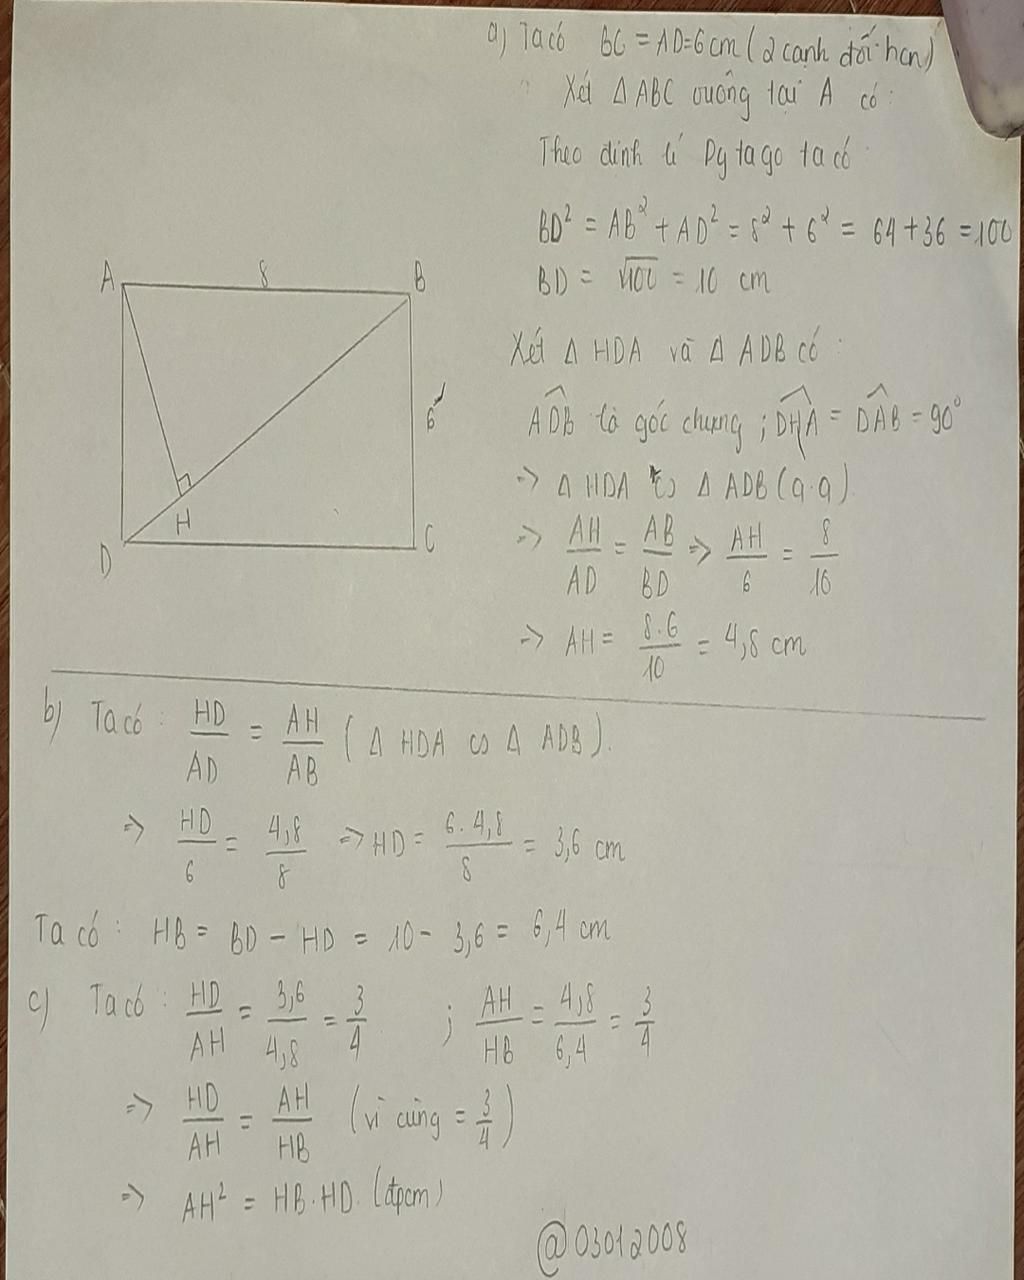 a) Ta có BC = AD = 6 cm (2 cạnh đối hcn)
Xét Δ ABC vuông tại A có :
Theo định lí Pytago ta có :
BD² = AB² + AD² = 8² + 6² = 64 + 36 = 100
BD = √100 = 10 cm
A 8 B
Xét Δ HDA và Δ ADB có :
6
ADB là góc chung ; DHA = DAB = 90°
=> Δ HDA ∽ Δ ADB (g.g)
H
D C
=> AH/AD = AB/BD => AH/6 = 8/10
=> AH = 8.6/10 = 4,8 cm
b) Ta có : HD/AD = AH/AB ( Δ HDA ∽ Δ ADB ).
=> HD/6 = 4,8/8 => HD = 6.4,8/8 = 3,6 cm
Ta có : HB = BD - HD = 10 - 3,6 = 6,4 cm
c) Ta có : HD/AH = 3,6/4,8 = 3/4 ; AH/HB = 4,8/6,4 = 3/4
=> HD/AH = AH/HB (vì cùng = 3/4)
=> AH² = HB.HD. (đpcm)
@03012008